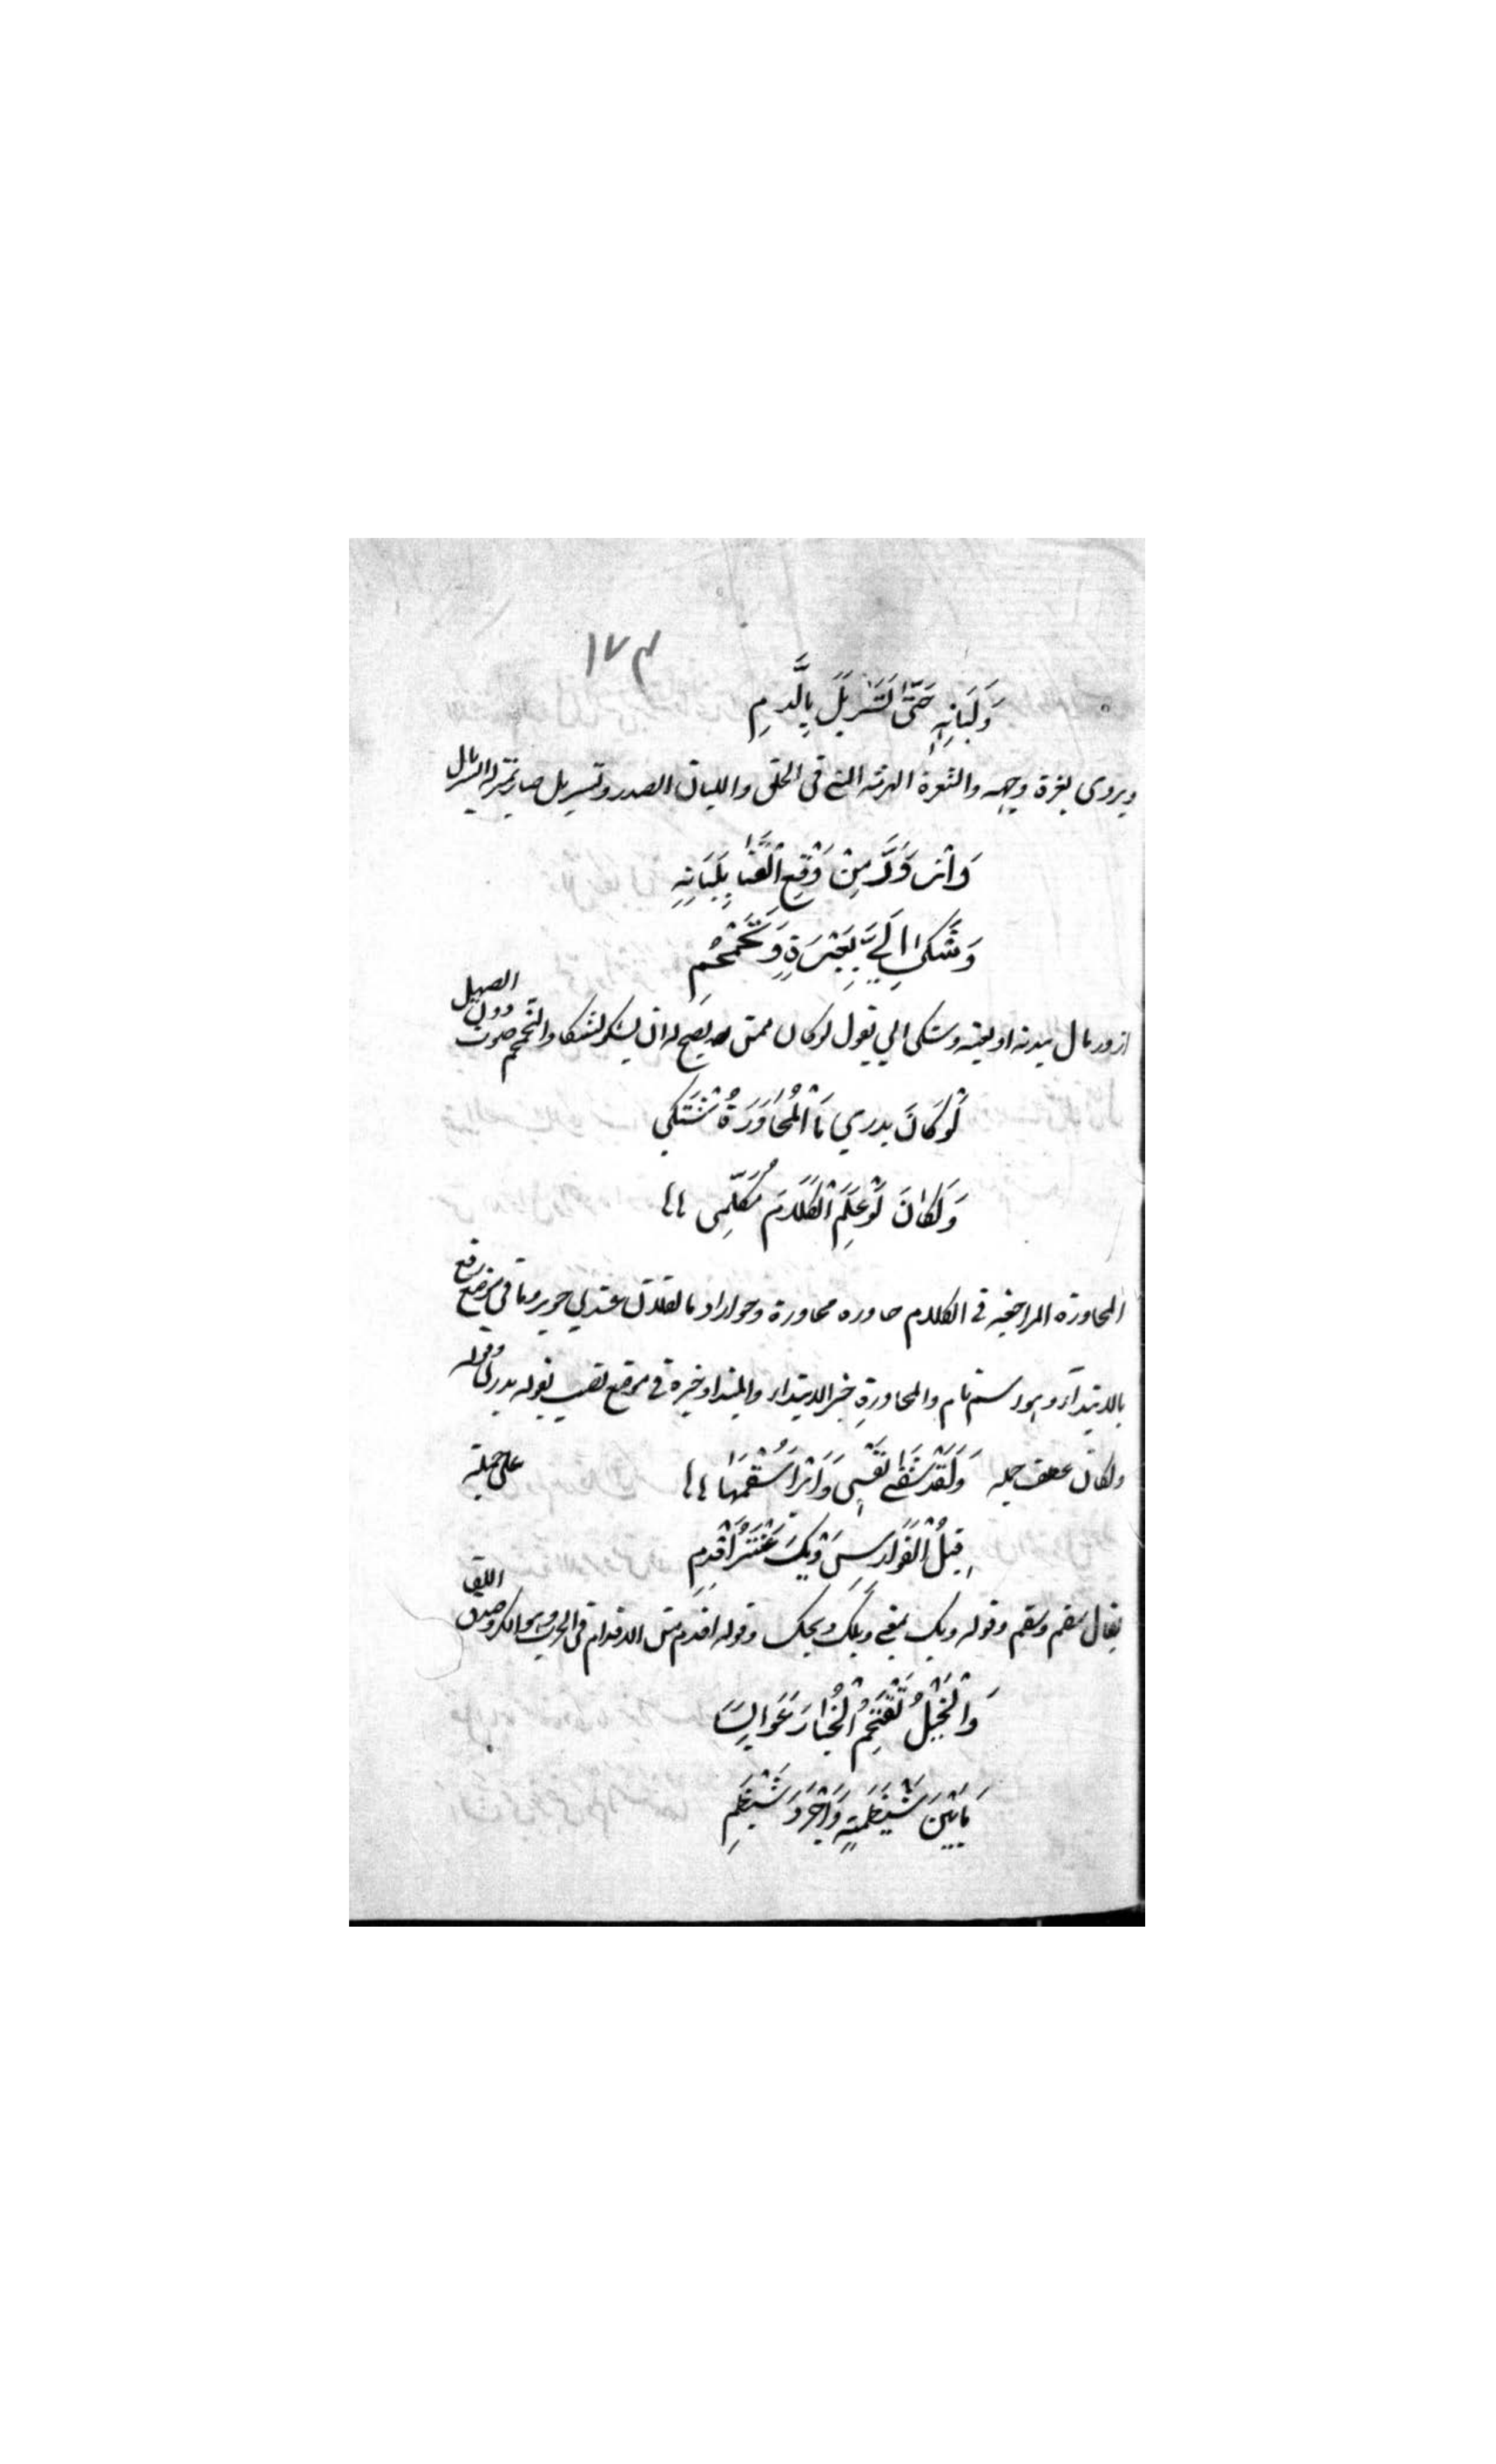 ١٧٣
وَلَبَانِهِ حَتَّىٰ تَسَرْبَلَ بِالَّدمِ
ويروى بغرة وجهه والثغرة الهزمة التي في الحلق واللبان الصدر وتسربل صار بمنزلة السربال
وَازْوَرَّ مِنْ وَقْعِ الْقَنَا بِلَبَانِهِ
وَشَكىٰ اِلَيَّ بِعَبْرَةٍ وَتَحَمْحُمِ
ازور مال وشكى الي يقول لوكان ممن يصح له ان يشكو لشكا والتحمحم صوت دون الصهيل
لَوْ كَانَ يدري مَا الْمُحَاوَرَةُ شْتَكي
وَلَكَانَ لَوْ عَلِمَ الْكَلَامَ مُكَلِّمِى
المحاورة المراجعة في الكلام حاوره محاورة وحوارا وما في موضع رفع
بالابتداء وهو اسم تام والمحاورةِ خبر الابتداء والمبتدا وخبره في موضع نصب بقوله يدرى وقوله
ولكان عطف جمله على جملة
وَلَقَدْ شَفٰى نَفْسِى وَابْرَا سُقْمَهَا
قِيلُ الْفَوَارِسِ وَيْكَ عَنْتَرُ اَقْدِمِ
يقال سقم وسقم وقوله ويك بمعنى ويلك ويحك وقوله اقدم من الاقدام في الحرب وهو الكر وصدق اللقا
وَالْخَيْلُ تَقْتَحِمُ الْخَبَارَ عَوَابِسًا
مَابَيْنَ شَيْظَمَةٍ وَاَجْرَدَ شَيْظَمِ